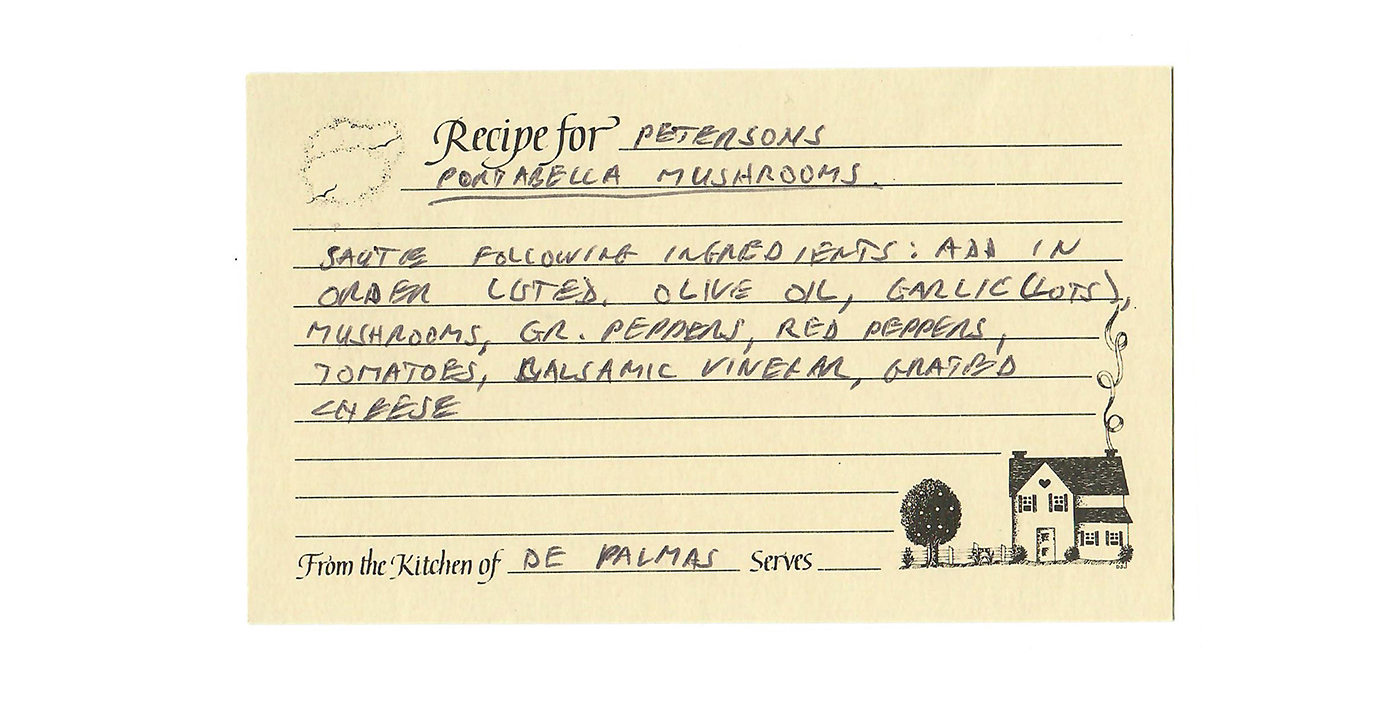 Recipe for PETERSONS
PORTABELLA MUSHROOMS.
SAUTE FOLLOWING INGREDIENTS: ADD IN
ORDER LISTED. OLIVE OIL, GARLIC (LOTS),
MUSHROOMS, GR. PEPPERS, RED PEPPERS,
TOMATOES, BALSAMIC VINEGAR, GRATED
CHEESE
From the Kitchen of DE PALMAS Serves